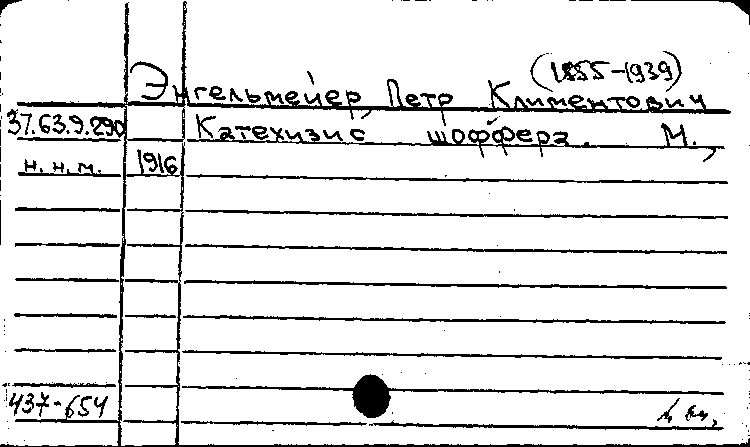 (1855-1939)
Энгельмейер, Петр Климентович
37.63.9.290 Катехизис шоффера. М.,
н. н. м. 1916
437-654